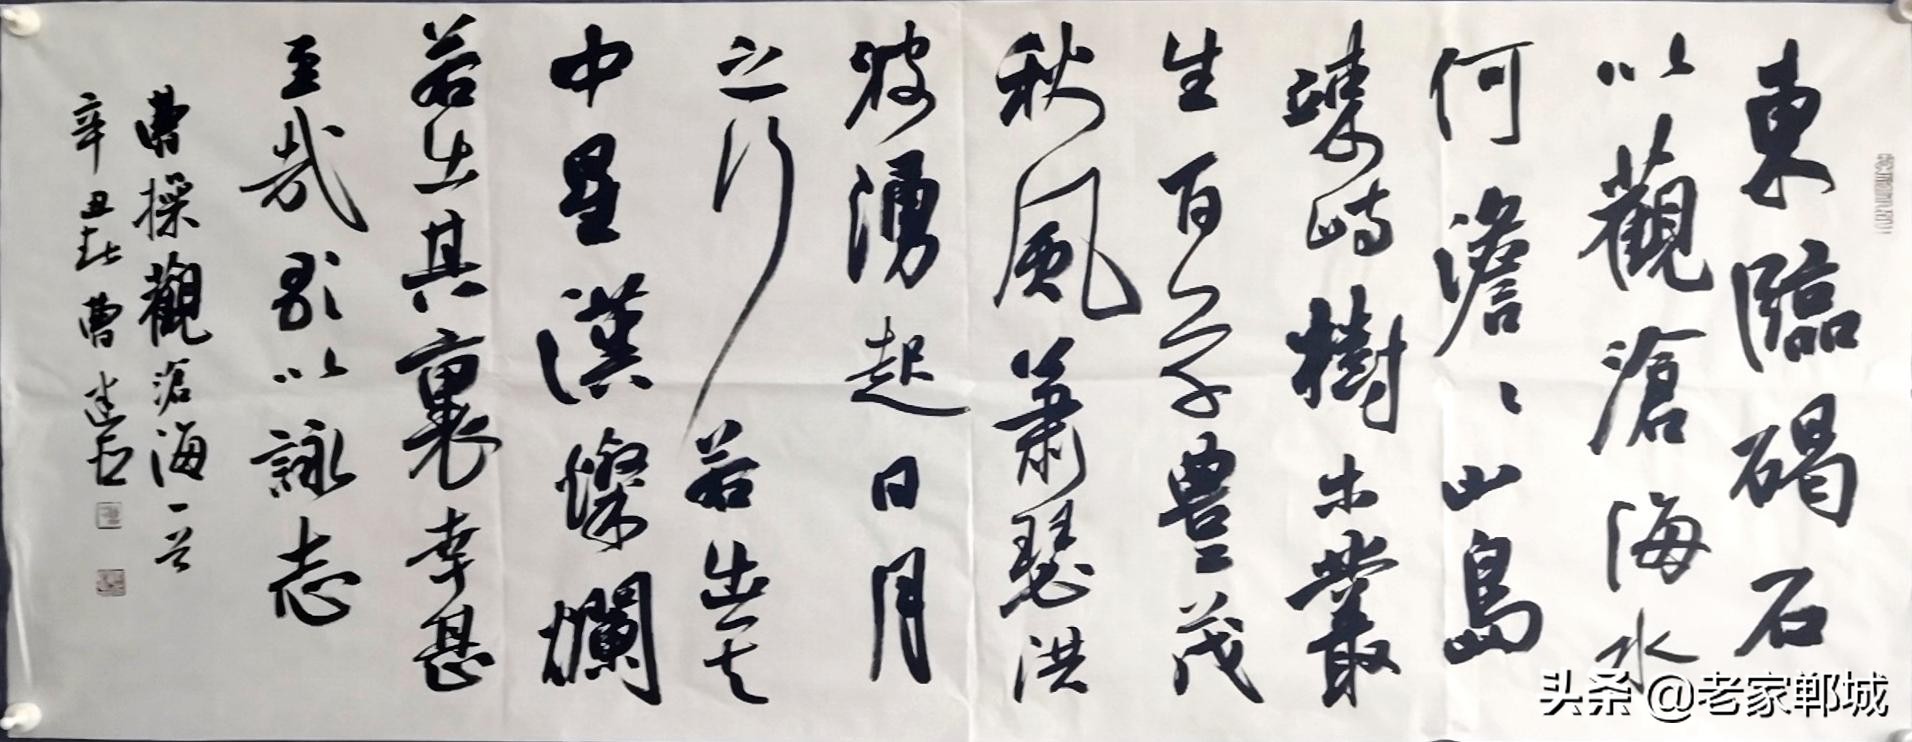 東臨碣石
以觀滄海水
何澹〻山島
竦峙樹木叢
生百草豊茂
秋風蕭瑟洪
波湧起日月
之行若出其
中星漢燦爛
若出其裏幸甚
至哉歌以詠志
曹操觀滄海一首
辛丑秋曹建
头条 @老家郸城